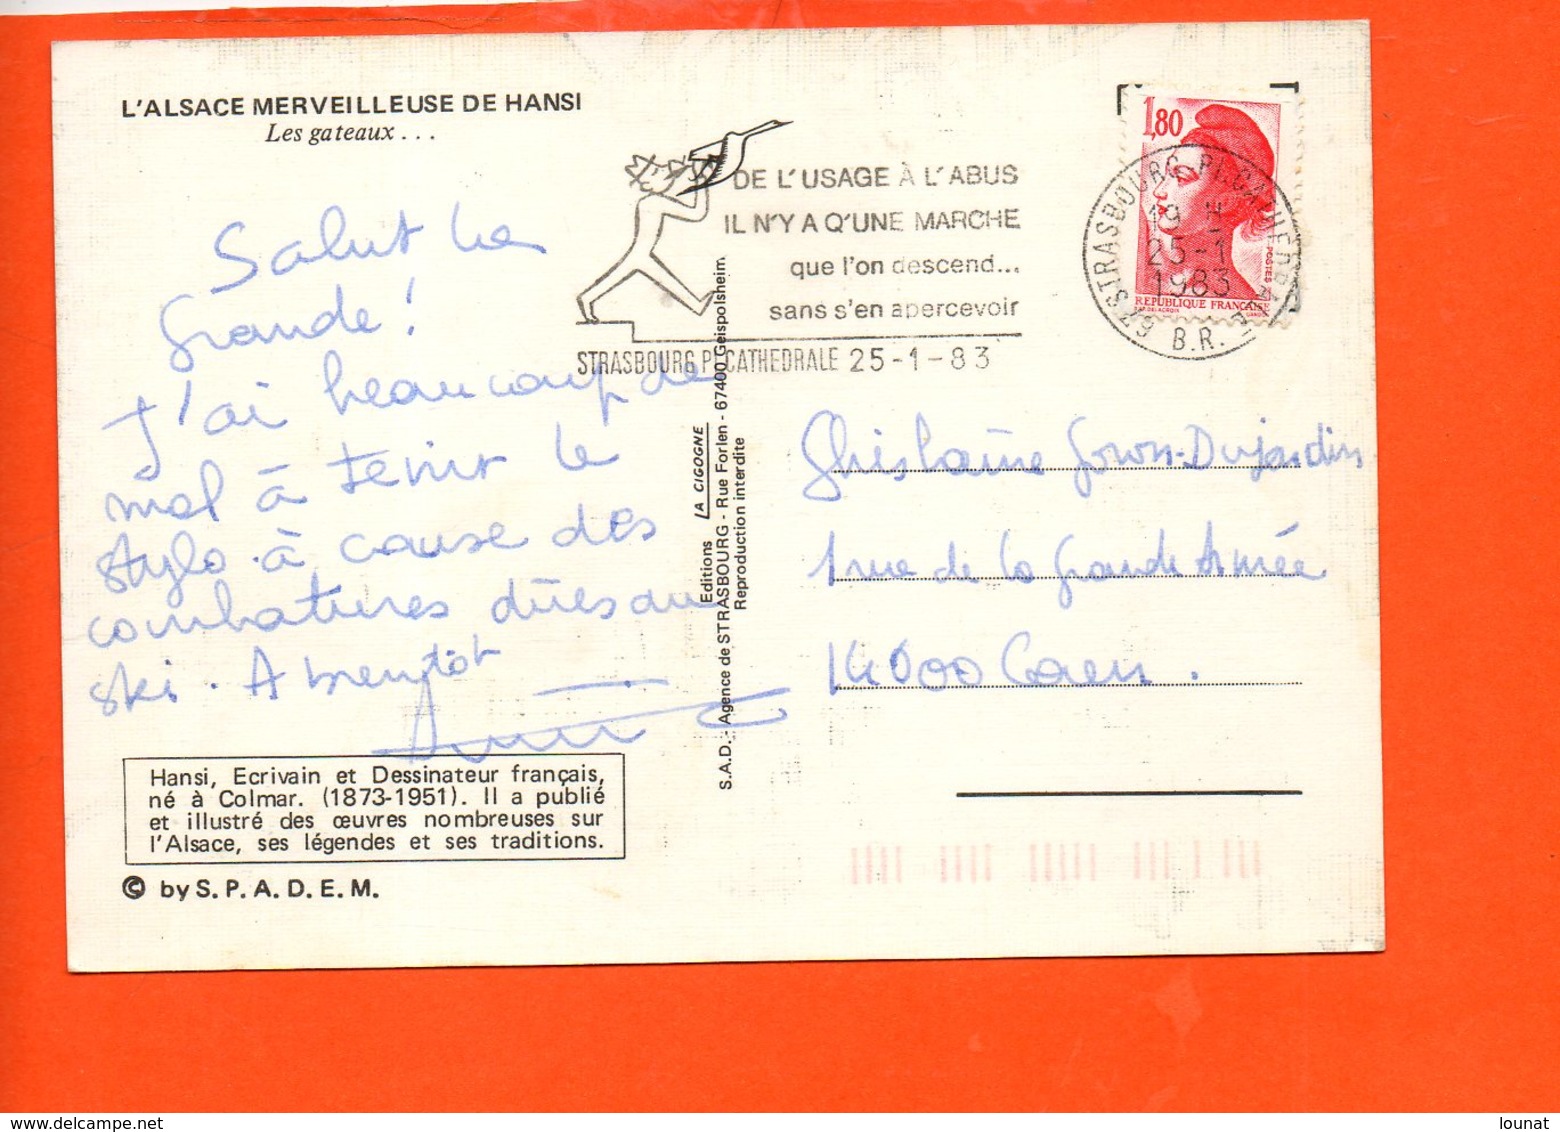 L'ALSACE MERVEILLEUSE DE HANSI
Les gateaux...
Salut la
grande !
J'ai beaucoup de
mal à tenir le
stylo à cause des
combatures dûes au
ski. A bientôt
Hansi, Ecrivain et Dessinateur français,
né à Colmar. (1873-1951). Il a publié
et illustré des œuvres nombreuses sur
l'Alsace, ses légendes et ses traditions.
© by S.P.A.D.E.M.
Editions LA CIGOGNE
S.A.D. - Agence de STRASBOURG - Rue Forlen - 67400 Geispolsheim
Reproduction interdite
DE L'USAGE À L'ABUS
IL N'Y A Q'UNE MARCHE
que l'on descend...
sans s'en apercevoir
STRASBOURG PL CATHEDRALE 25-1-83
1,80
REPUBLIQUE FRANCAISE
POSTES
67 STRASBOURG PL CATHEDRALE
19 H
25-1
1983
B.R.
Ghislaine Goron-Dujardin
1 rue de la grande Armée
14000 Caen.
lounat